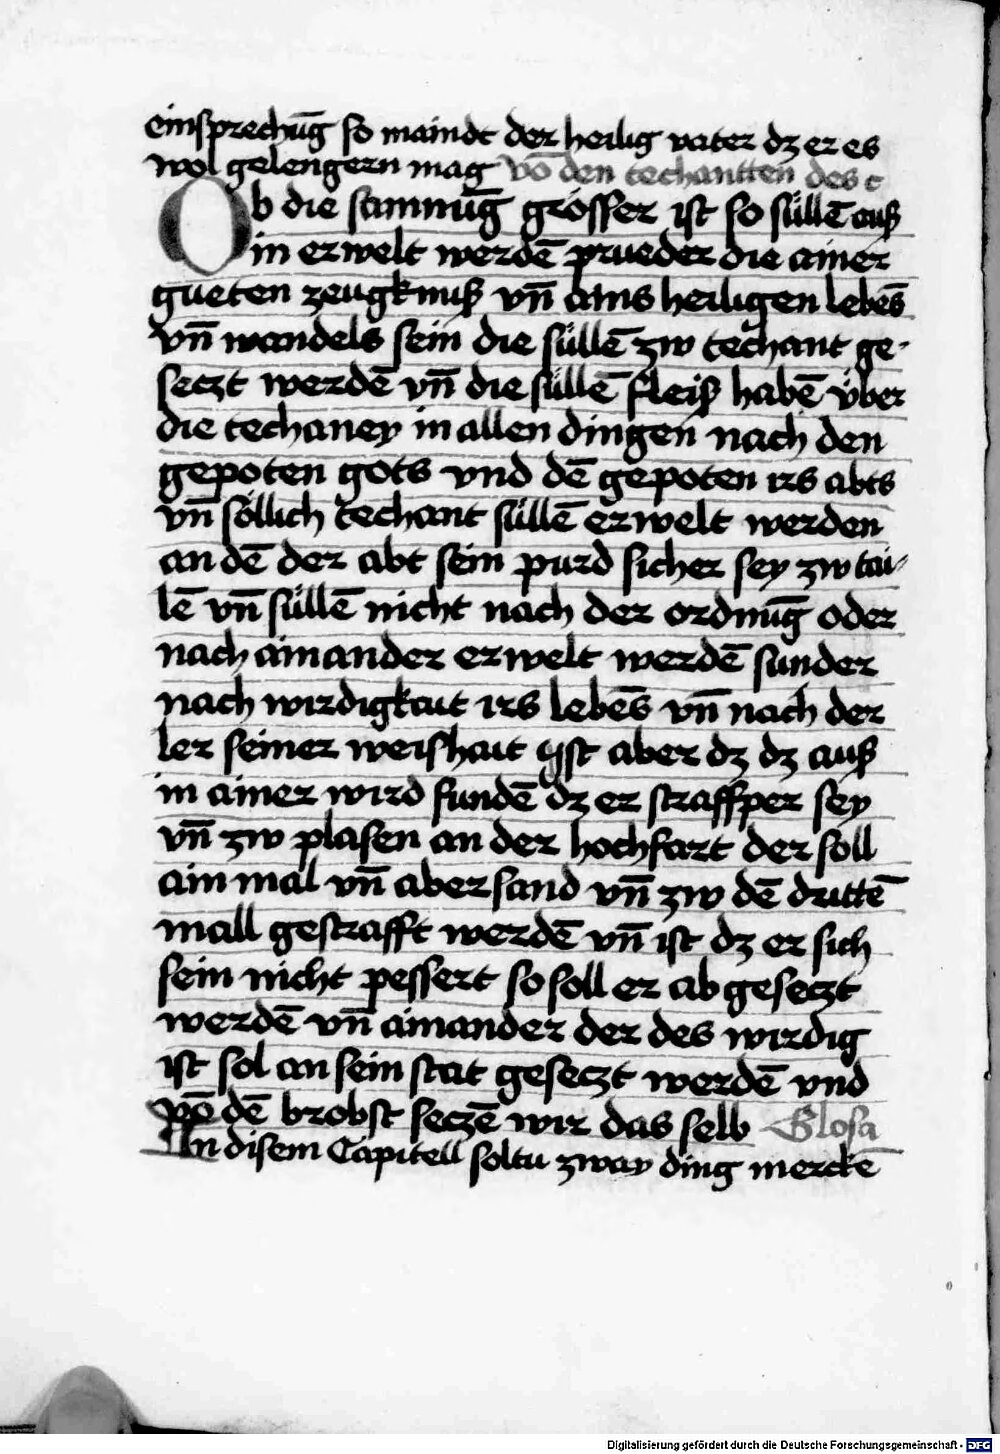 einsprechūg so maindt der heilig vater dz er es
wol gelengern mag võ den techantten des c
Ob die samnūg grösser ist so süllē auß
in erwelt werdē prueder die ainer
gueten zeugknuß vn̄ ains heiligen lebēs
vn̄ wandels sein die süllē zw techant ge-
seczt werdē vn̄ die süllē fleiß habē über
die techaney in allen dingen nach den
gepoten gots vnd dē gepoten irs abts
vn̄ söllich techant süllē erwelt werden
an dē der abt sein purd sicher sey zw tai-
lē vn̄ süllē nicht nach der ordnūg oder
nach ainander erwelt werdē sunder
nach wirdigkait irs lebēs vn̄ nach der
ler seiner weishait Ist aber dz dz auß
in ainer wird fundē dz er straffper sey
vn̄ zw plasen an der hochfart der soll
ain mal vn̄ abersand vn̄ zw dē drittē
mall gestrafft werdē vn̄ ist dz er sich
sein nicht pessert so soll er ab geseczt
werdē vn̄ ainander der des wirdig
ist sol an sein stat geseczt werdē vnd
võ dē brobst seczē wir das selb Glosa
In disem Capitell soltu zway ding merckē
Digitalisierung gefördert durch die Deutsche Forschungsgemeinschaft - DFG